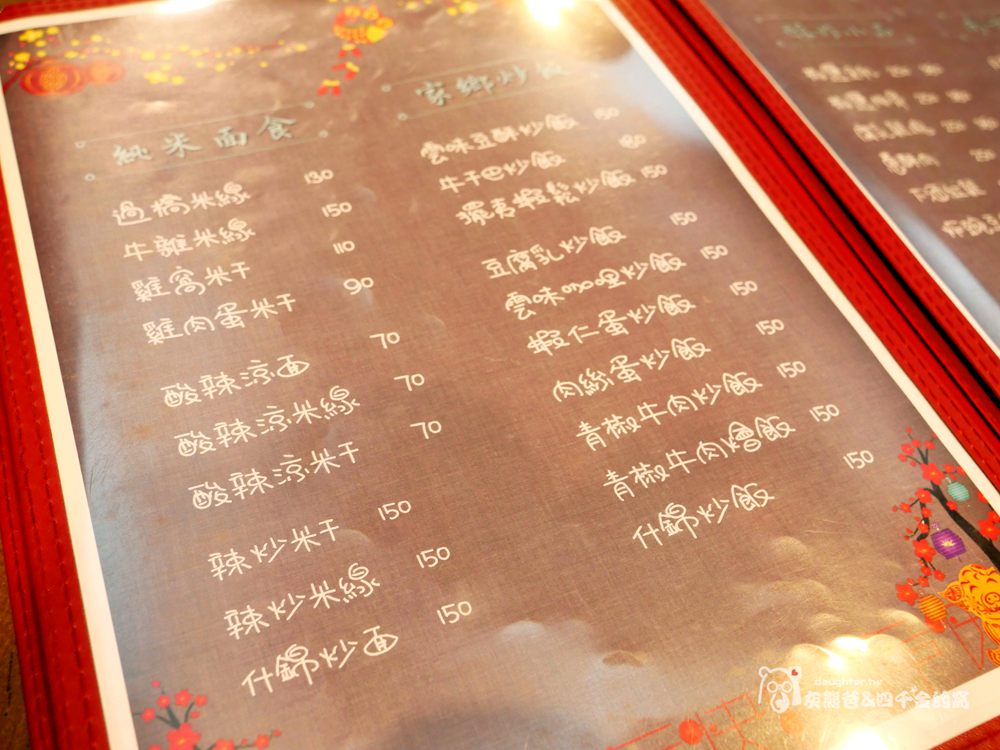 純米面食
過橋米線 130
牛雜米線 150
雞窩米干 110
雞肉蛋米干 90
酸辣涼面 70
酸辣涼米線 70
酸辣涼米干 70
辣炒米干 150
辣炒米線 150
什錦炒面 150
家鄉炒飯
雲味豆酥炒飯 150
牛干巴炒飯 180
擺夷蝦鬆炒飯 150
豆腐乳炒飯 150
雲味咖哩炒飯 150
蝦仁蛋炒飯 150
肉絲蛋炒飯 150
青椒牛肉炒飯 150
青椒牛肉燴飯 150
什錦炒飯 150
daughter.tw
灰熊爸&四千金的窩